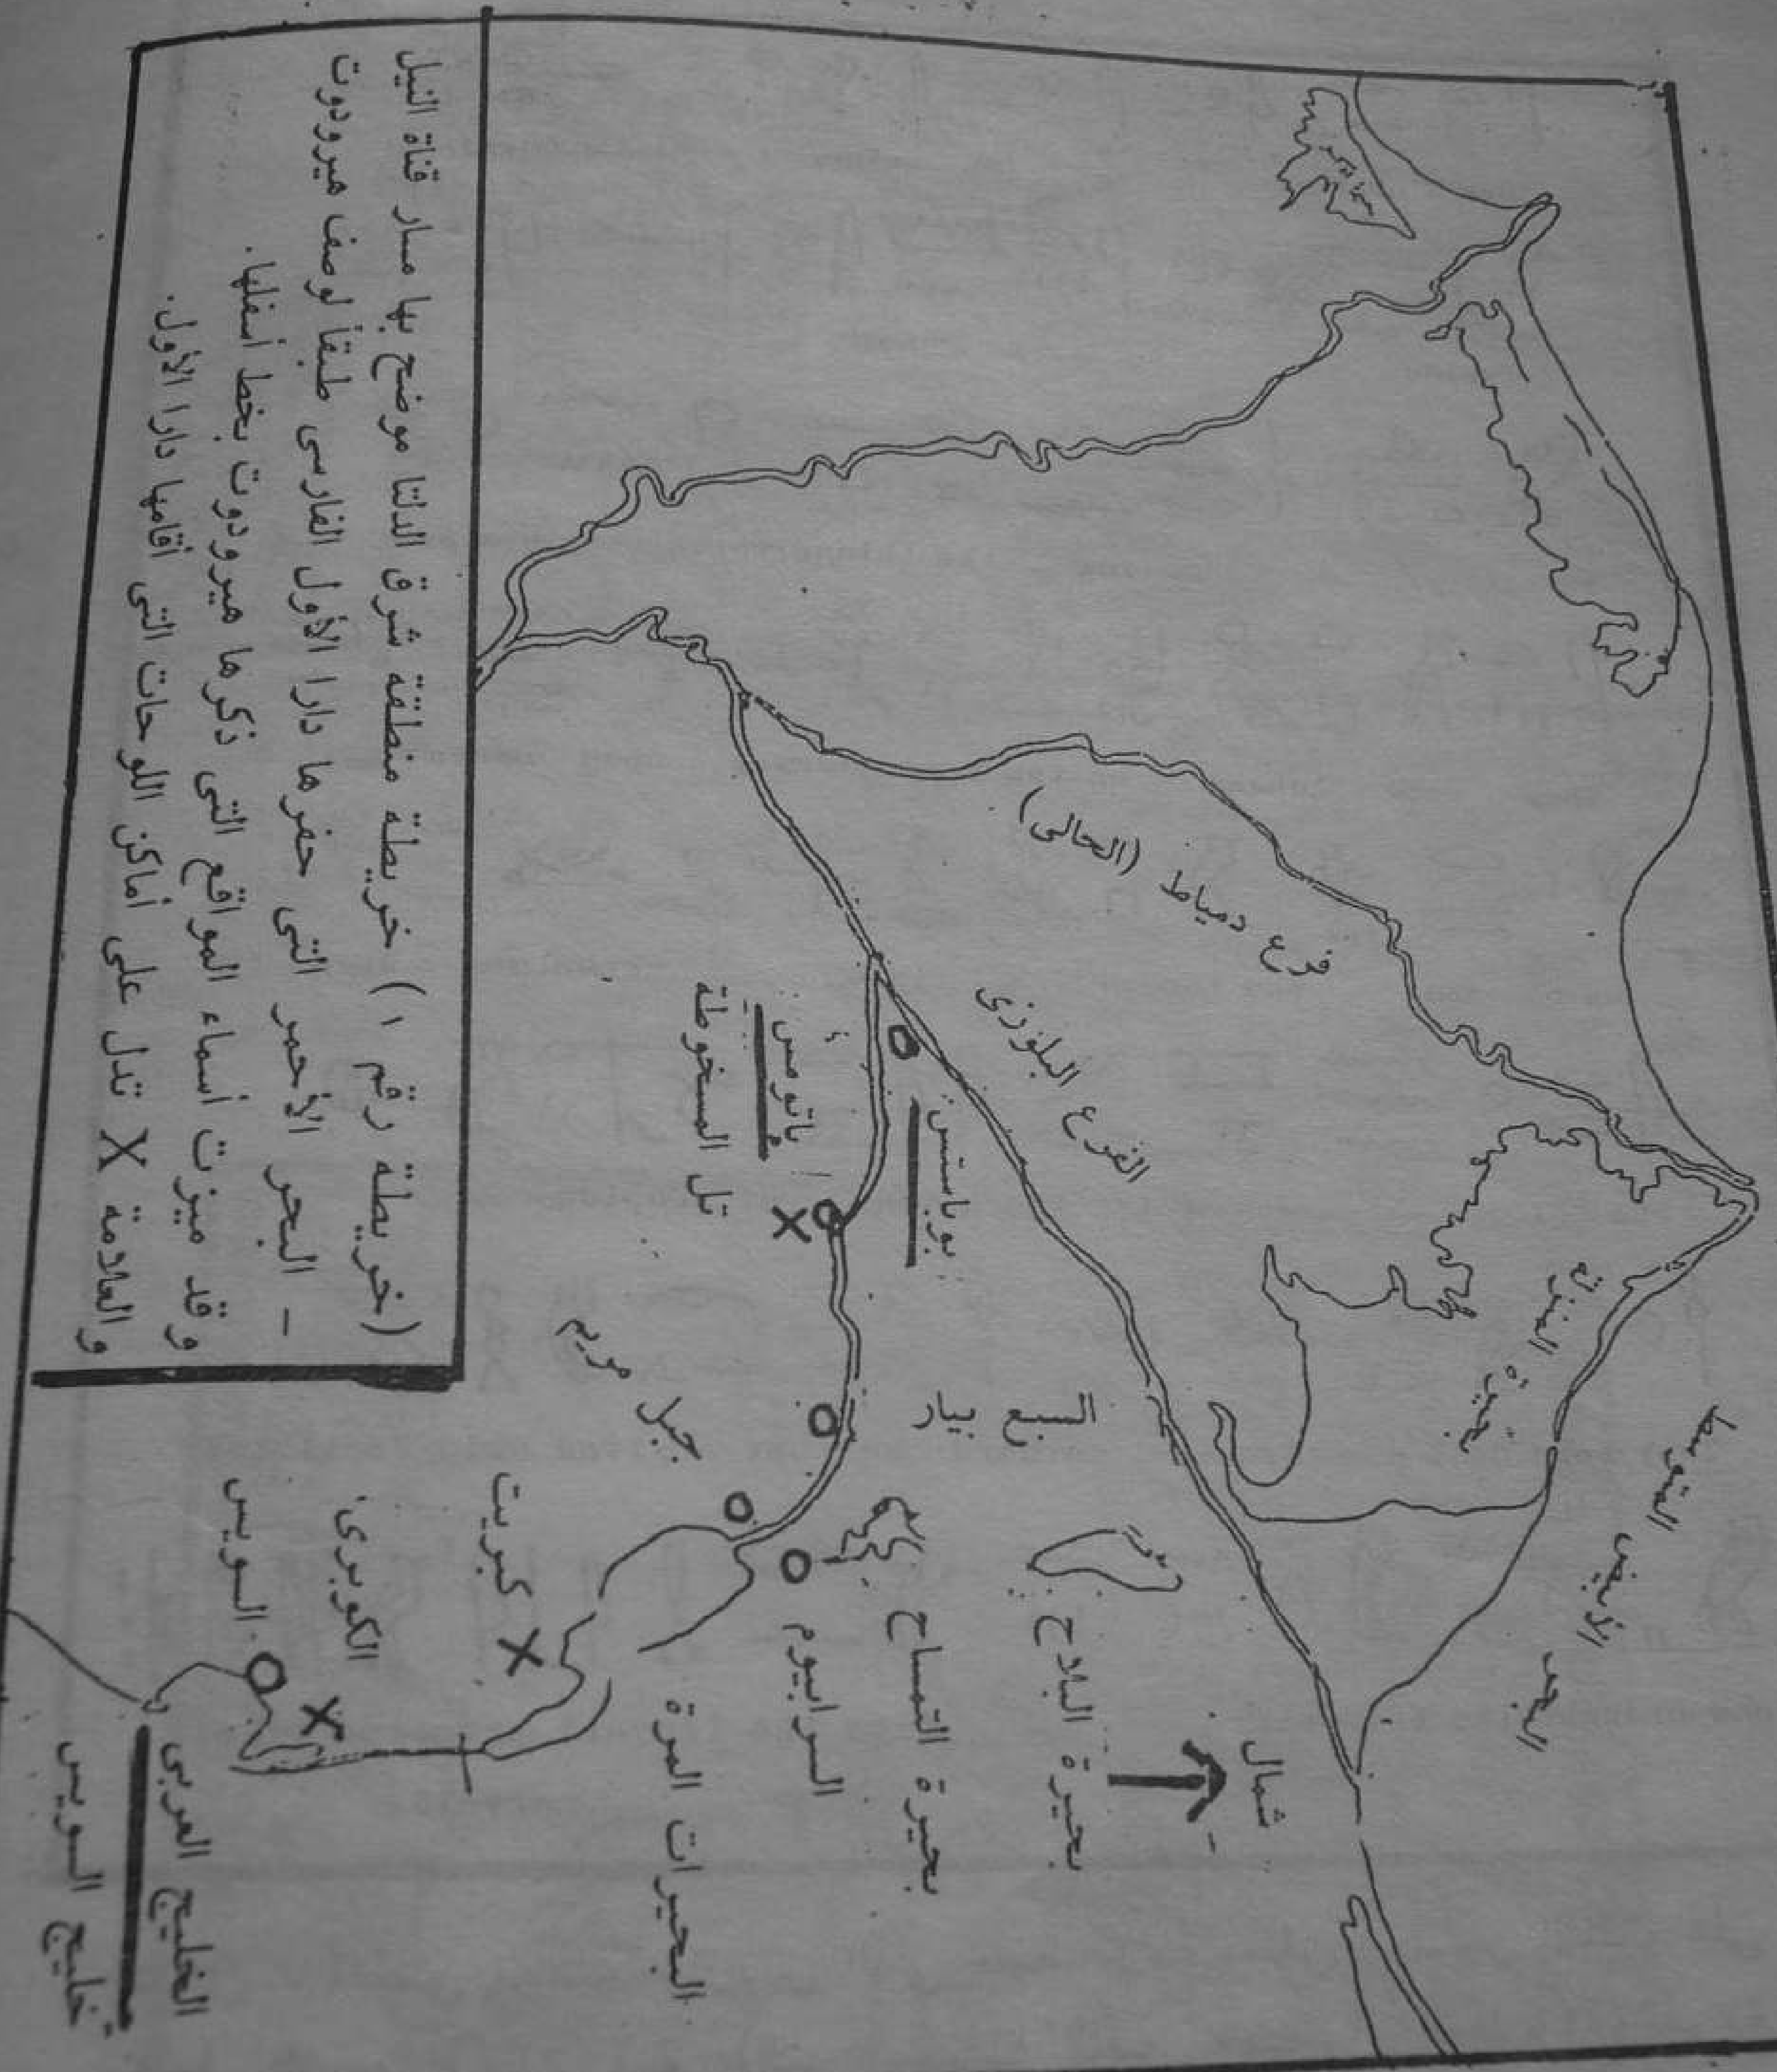 البحر الأبيض المتوسط
بحيرة المنزلة
فرع دمياط (الحالى)
الفرع البلوزى
شمال
بوباستس
بحيرة البلاح
السبع بيار
بحيرة التمساح
باتومس
تل المسخوطة
X
السرابيوم
جبل مريم
البحيرات المرة
كبريت
X
الكوبرى
X
السويس
الخليج العربى
خليج السويس
(خريطة رقم ١) خريطة منطقة شرق الدلتا موضح بها مسار قناة النيل
– البحر الأحمر التى حفرها دارا الأول الفارسى طبقاً لوصف هيرودوت
وقد ميزت أسماء المواقع التى ذكرها هيرودوت بخط أسفلها.
والعلامة X تدل على أماكن اللوحات التى أقامها دارا الأول.